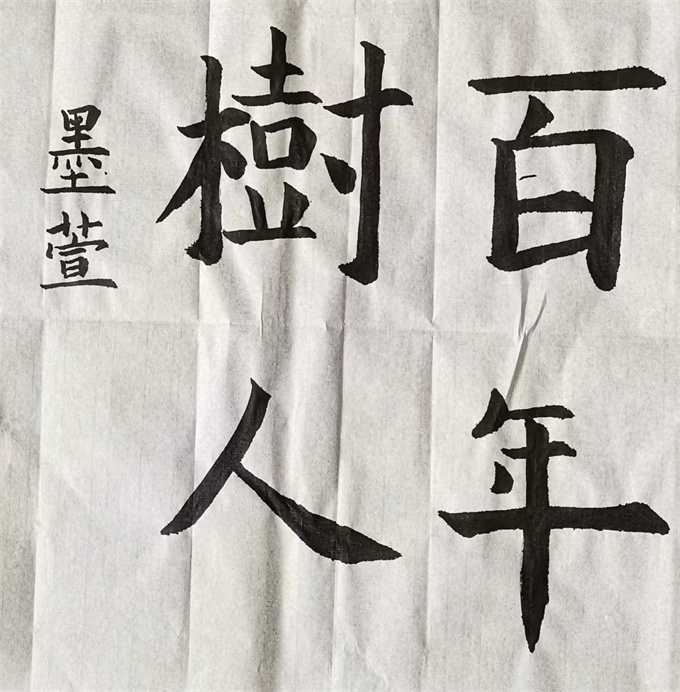 百年
樹人
墨萱